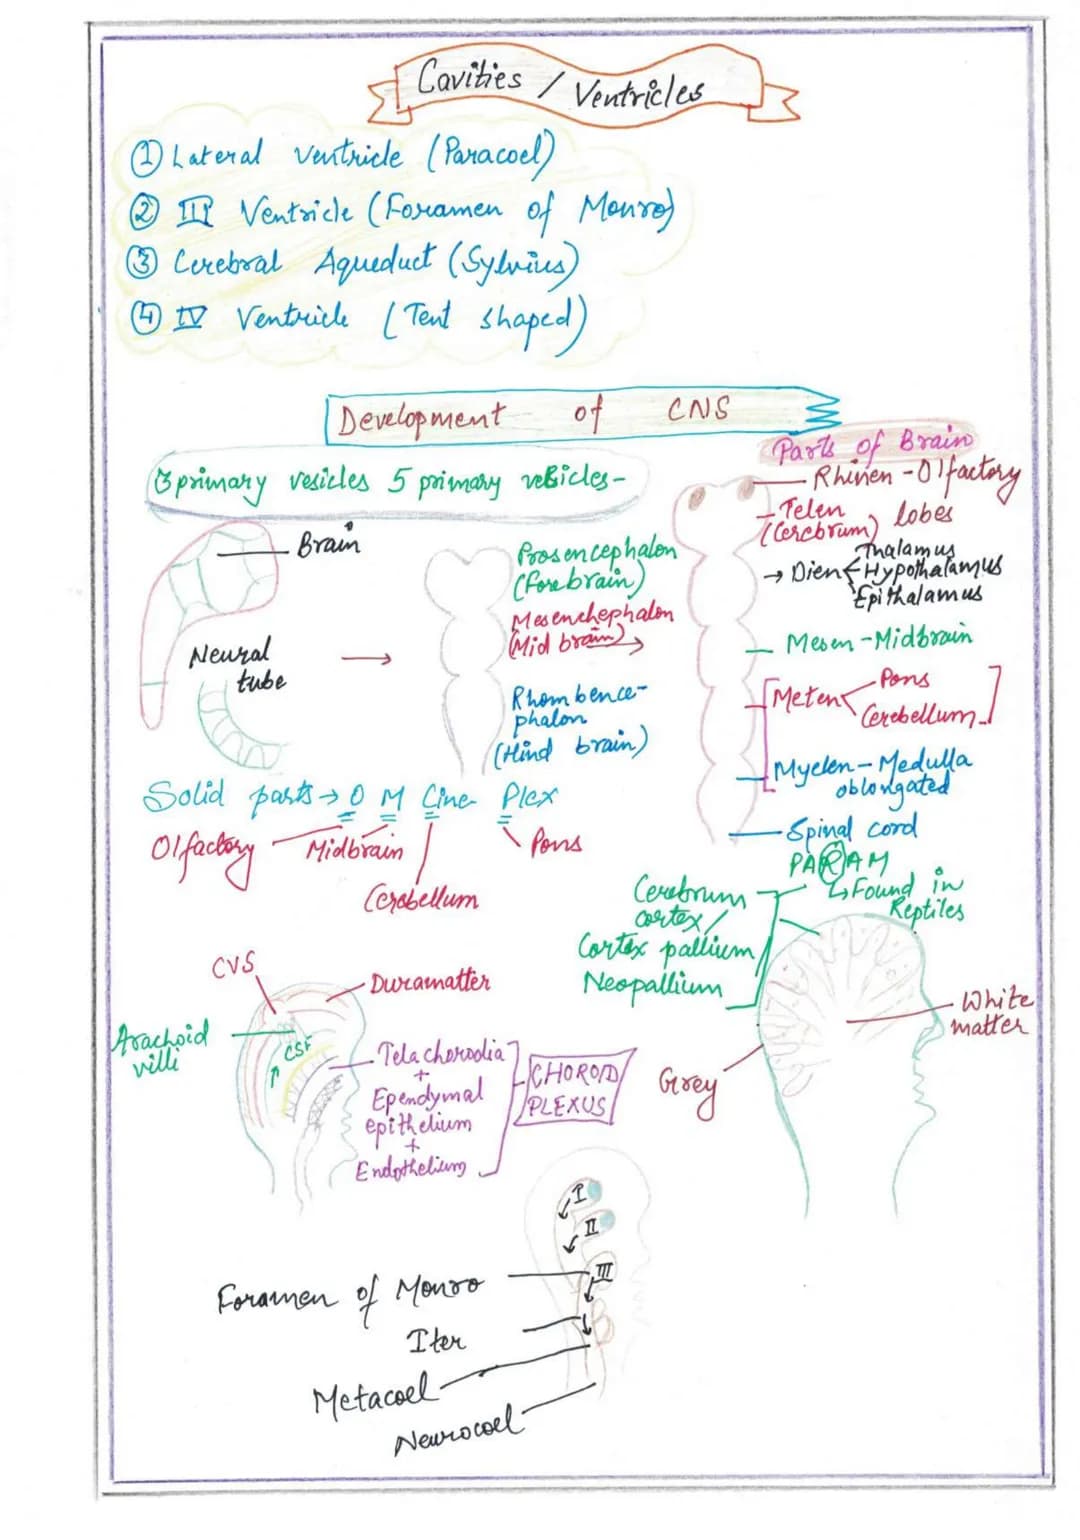 Cavities / Ventricles
① Lateral ventricle (Paracoel)
② III Ventricle (Foramen of Monro)
③ Cerebral Aqueduct (Sylvius)
④ IV Ventricle (Tent shaped)
Development of CNS
3 primary vesicles 5 primary vesicles-
Parts of Brain
Rhinen - Olfactory
lobes
Telen
(Cerebrum)
→ Dien
Thalamus
Hypothalamus
Epithalamus
Mesen - Midbrain
Meten
Pons
Cerebellum
Myelen - Medulla
oblongated
Spinal cord
Brain
Neural
tube
Prosencephalon
(Forebrain)
Mesenchephalon
(Mid brain)
Rhombence-
phalon
(Hind brain)
Solid parts → O M Cine Plex
Olfactory
Midbrain
Cerebellum
Pons
PARAM
↳ Found in
Reptiles
Cerebrum
cortex/
Cortex pallium
Neopallium
White
matter
Grey
CVS
Duramatter
Arachoid
villi
CSF
Tela chorodia
+
Ependymal
epithelium
+
Endothelium
CHOROID
PLEXUS
I
II
III
Foramen of Monro
Iter
Metacoel
Neurocoel